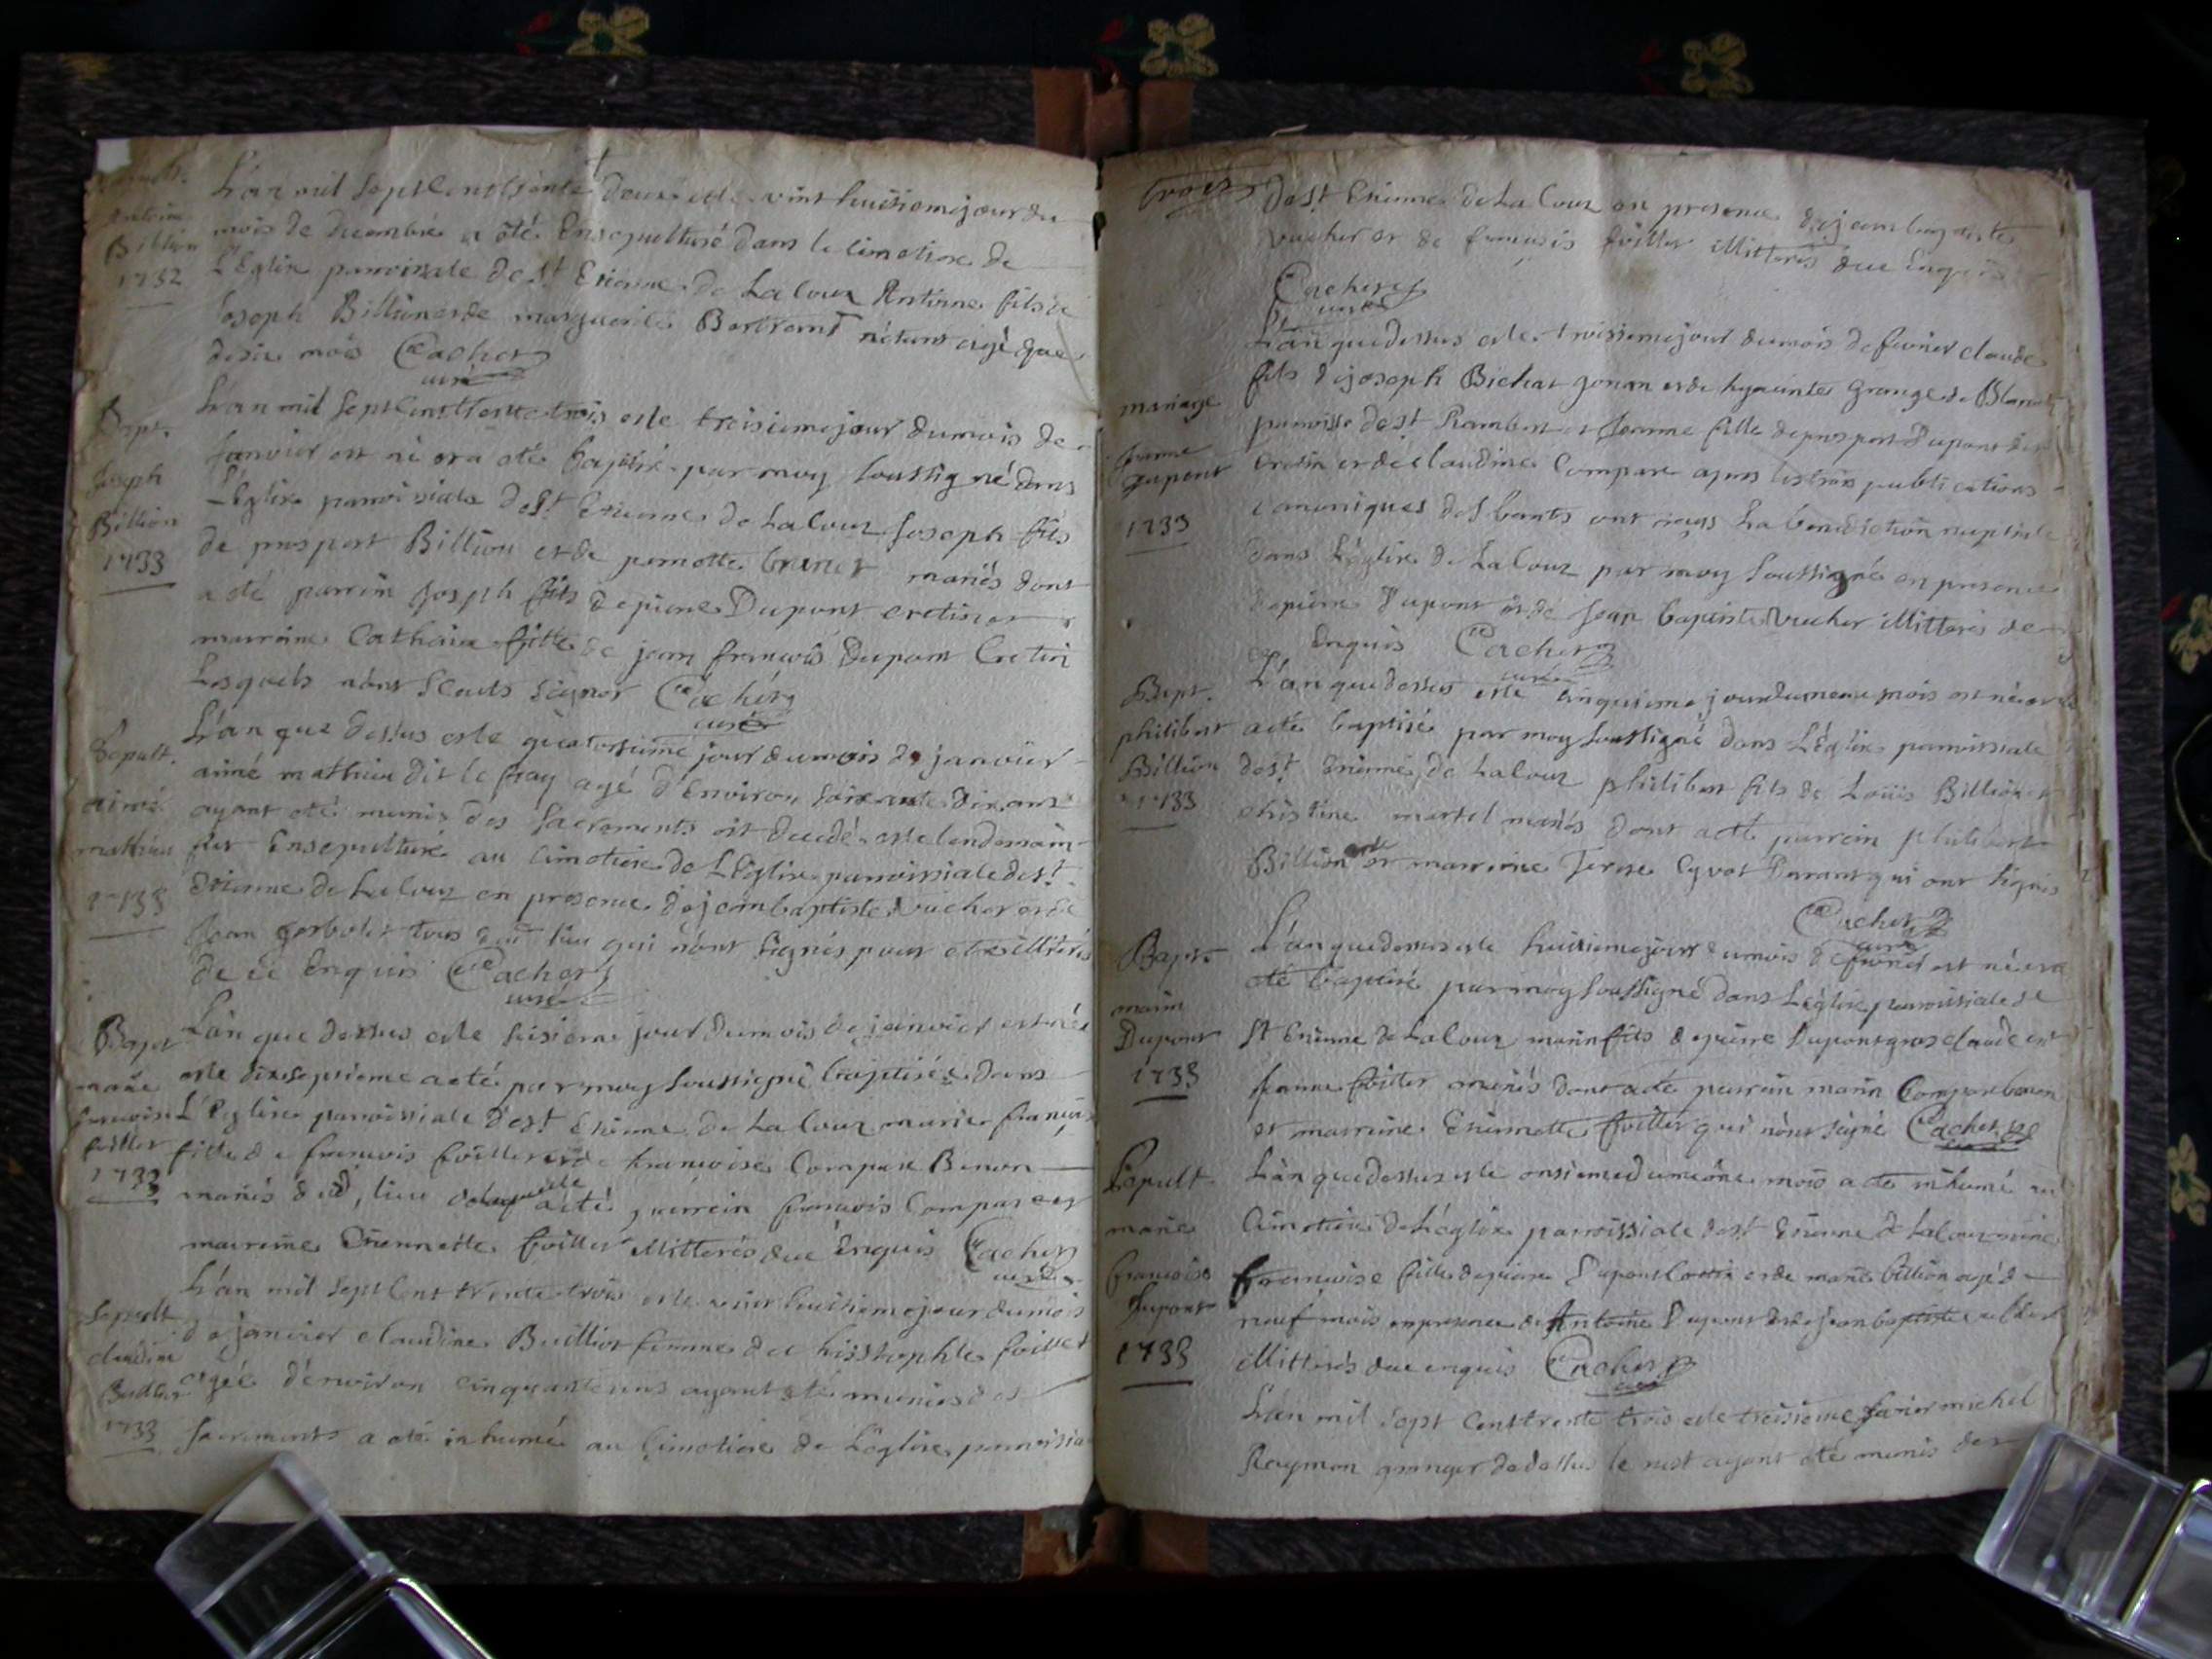 Sepult.
Antoine
Billion
1732
L'an mil sept cent trente deux et le vint huitieme jour du
mois de decembre a oté Ensepulturé dans le cimetiere de
L'Eglise parroissiale de St Etienne de Lacoux Antoine fils de
Joseph Billion et de marguerite Bertrand n'etant agé que
de six mois Cachet
curé
Bapt.
Joseph
Billion
1733
L'an mil sept cent trente trois et le troisieme jour du mois de
janvier est né et a oté baptisé par moy soussigné dans
L'Eglise parroissiale de St Etienne de Lacoux Joseph fils
de prospert Billion et de pernette brunet mariés dont
a oté parrin Joseph fils de pierre Dupont cretin et
marraine Catherine fille de jean francois Dupont Cretin
Lesquels n'ont sceuts signer Cachet
curé
Sepult.
aimé
mathieu
1733
L'an que dessus et le quatorsieme jour du mois de janvier
aimé mathieu dit le fray agé d'Environ soixante dix ans
ayant oté munis des sacrements est decedé et le lendemain
fut Ensepulturé au cimotiere de L'Eglise parroissiale de St
Etienne de Lacoux en presence de jean baptiste Vucher et de
Jean gerbolet tous dud lieu qui n'ont signés pour etre illiterés
de ce Enquis Cachet
curé
Bapt
marie
francoise
foillet
1733
L'an que dessus et le seisieme jour du mois de janvier est née
et le dixseptieme a oté par moy soussigné baptisée dans
L'Eglise parroissiale de St Etienne de Lacoux marie francoise
fille de francois foillet et de francoise Compare Benon
mariés dud, lieu de laquelle a oté parrein francois Compare et
marreine Etiennette foillet illitterés de ce Enquis Cachet
curé
Sepult
claudine
Buillet
1733
L'an mil sept cent trente trois et le vint huitieme jour du mois
de janvier claudine Buillet femme de chisstophle foillet
agée d'environ cinquante ans ayant oté munis des
sacrements a oté inhumé au Cimotiere de L'eglise parroissia
trois
de St Etienne de Lacoux en presence de jean baptiste
vucher et de francois foillet illitterés de ce Enquis
Cachet
curé
mariage
Jeanne
Dupont
1733
L'an que dessus et le troisieme jour du mois de fevrier claude
fils de joseph Bichat gonan et de hyacinte Grange de Blanat
parroisse de St Rambert et Jeanne fille de prospert Dupont dit
cretin et de claudine Compare apres les trois publications
canoniques des bants ont reçus La benediction nuptiale
dans L'eglise de Lacoux par moy soussigné en presence
de pierre Dupont et de Jean baptiste Vucher illitterés de
ce Enquis Cachet
curé
Bapt.
philibert
Billion
1733
L'an que dessus et le cinquieme jour du meme mois est né et
a oté baptisé par moy soussigné dans L'Eglise parroissiale
de St Etienne de Lacoux philibert fils de Louis Billion et
christine martel mariés dont a oté parrein philibert
Billion et marreine Terese Cyvot Durant qui ont signés
Cachet
curé
Bapt.
marin
Dupont
1733
L'an que dessus et le huitieme jour du mois de fevrier est né et a
oté baptisé par moy soussigné dans L'eglise parroissiale de
St Etienne de Lacoux marin fils de pierre Dupont gros claude et
jeanne foillet mariés dont a oté parrain marin Compare benon
et marreine Etiennette foillet qui n'ont signé Cachet
curé
Sepult.
marie
francoise
Dupont
1733
L'an que dessus et le onsieme du meme mois a oté inhumé au
Cimotiere de L'eglise parroissiale de St Etienne de Lacoux marie
francoise fille de pierre Dupont Cretin et de marie billion agé de
neuf mois en presence de Antoine Dupont et de jean baptiste vucher
illitterés de ce enquis Cachet
curé
L'an mil sept cent trente trois et le treisieme fevrier michel
Reymon granger de dessus le nest ayant oté munis des